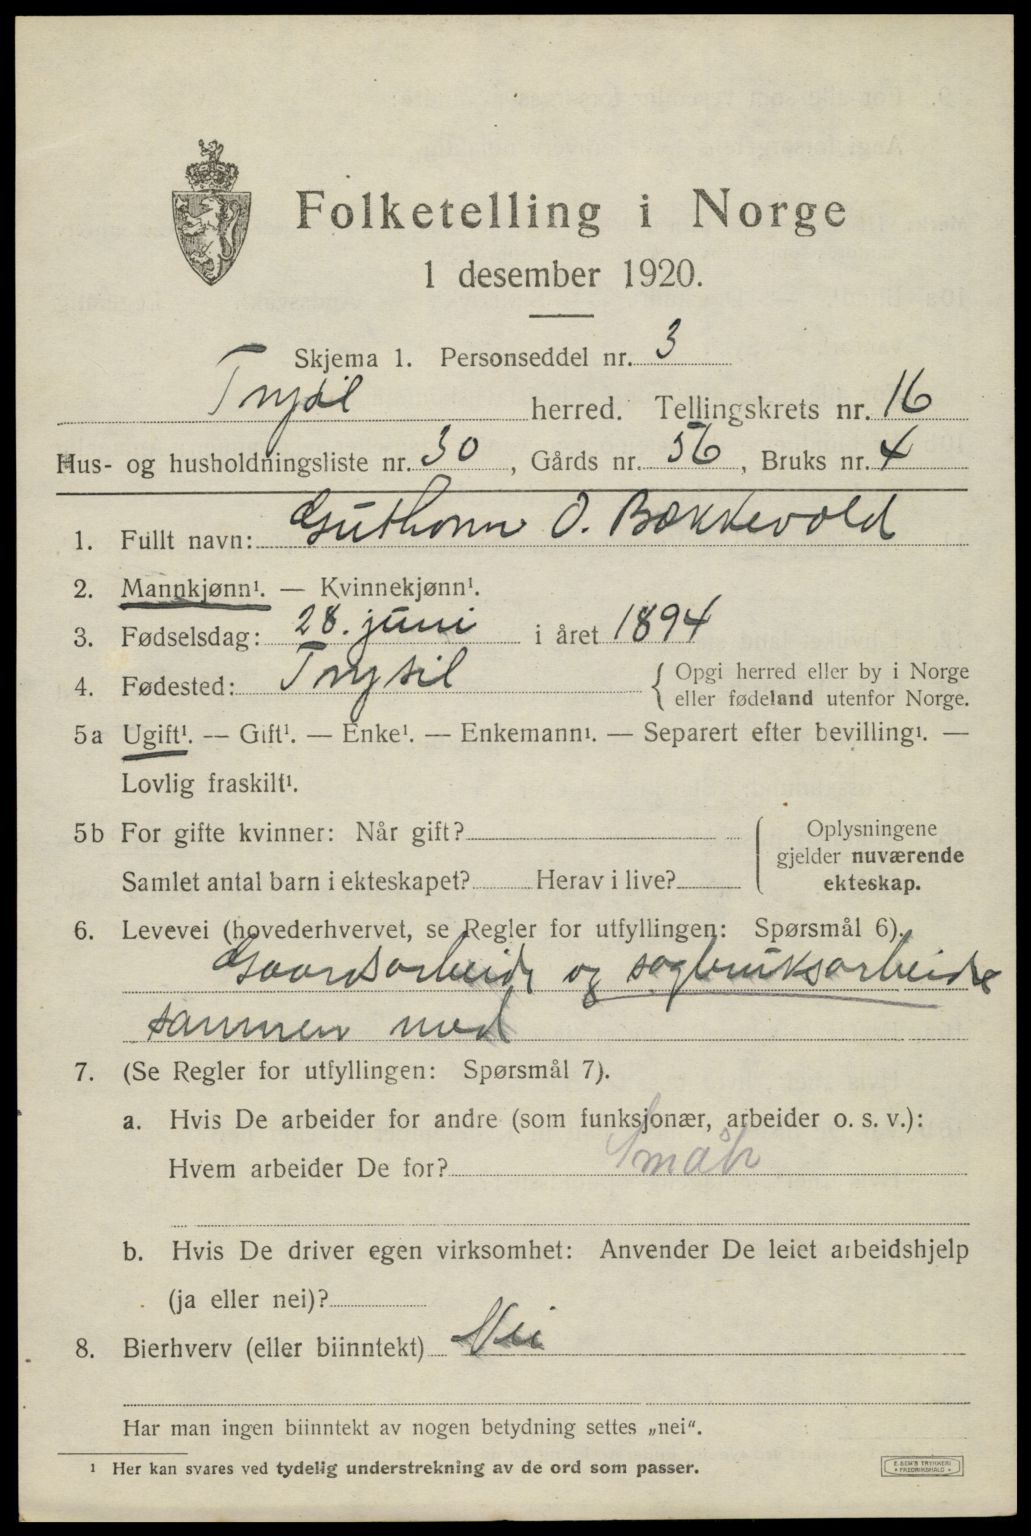 Folketelling i Norge
1 desember 1920.
Skjema 1. Personseddel nr. 3
Trysil herred. Tellingskrets nr. 16
Hus- og husholdningsliste nr. 30, Gårds nr. 56, Bruks nr. 4
1. Fullt navn: Guthorm O. Bækkevold
2. Mannkjønn¹. — Kvinnekjønn¹.
3. Fødselsdag: 28. juni i året 1894
4. Fødested: Trysil { Opgi herred eller by i Norge
eller fødeland utenfor Norge.
5a Ugift¹. — Gift¹. — Enke¹. — Enkemann¹. — Separert efter bevilling¹. —
Lovlig fraskilt¹.
5b For gifte kvinner: Når gift?
Samlet antal barn i ekteskapet? Herav i live?
{ Oplysningene
gjelder nuværende
ekteskap.
6. Levevei (hovederhvervet, se Regler for utfyllingen: Spørsmål 6).
Gaardsarbeide og sagbruksarbeide
sammen med
7. (Se Regler for utfyllingen: Spørsmål 7).
a. Hvis De arbeider for andre (som funksjonær, arbeider o. s. v.):
Hvem arbeider De for? Småbr
b. Hvis De driver egen virksomhet: Anvender De leiet arbeidshjelp
(ja eller nei)?
8. Bierhverv (eller biinntekt) Nei
Har man ingen biinntekt av nogen betydning settes „nei“.
¹ Her kan svares ved tydelig understrekning av de ord som passer.
E. SEM'S TRYKKERI
FREDRIKSHALD